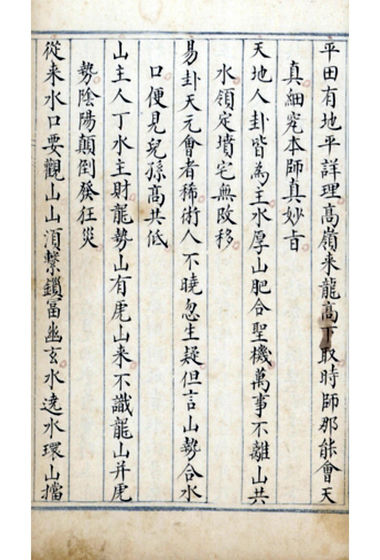 平田有地平詳理高嶺来龍高下取時師那能會天
真細究本師真妙旨
天地人卦皆為主水厚山肥合聖機萬事不離山共
水領定墳宅無改移
易卦天元會者稀術人不曉忽生疑但言山勢合水
口便見兒孫高共低
山主人丁水主財龍勢山有虎山来不識龍山并虎
勢陰陽顛倒發狂災
從来水口要觀山山須繫鎖冨幽玄水遶水環山擋